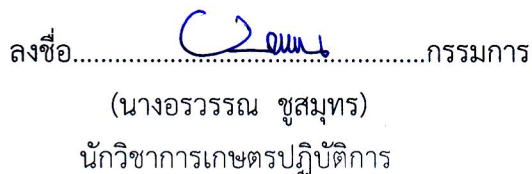 ลงชื่อ....................................................กรรมการ
(นางอรวรรณ ชูสมุทร)
นักวิชาการเกษตรปฏิบัติการ